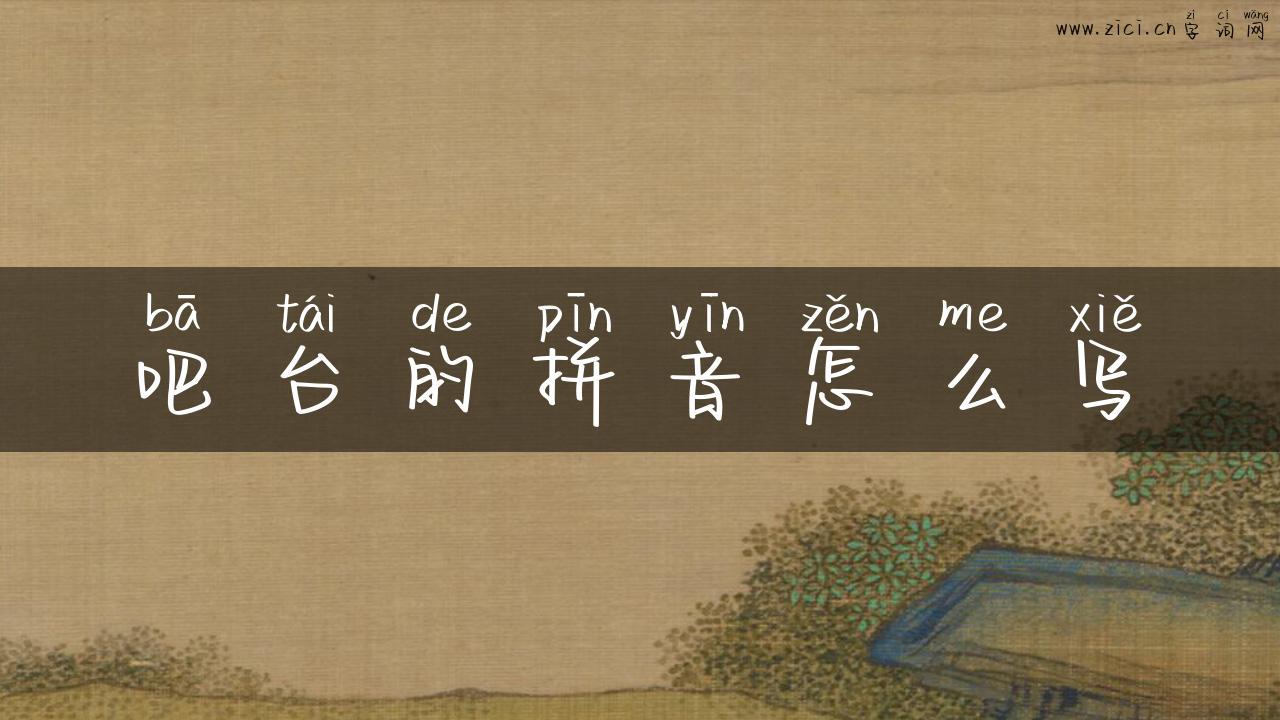 zì cí wǎng
www.zici.cn 字 词 网
bā tái de pīn yīn zěn me xiě
吧 台 的 拼 音 怎 么 写